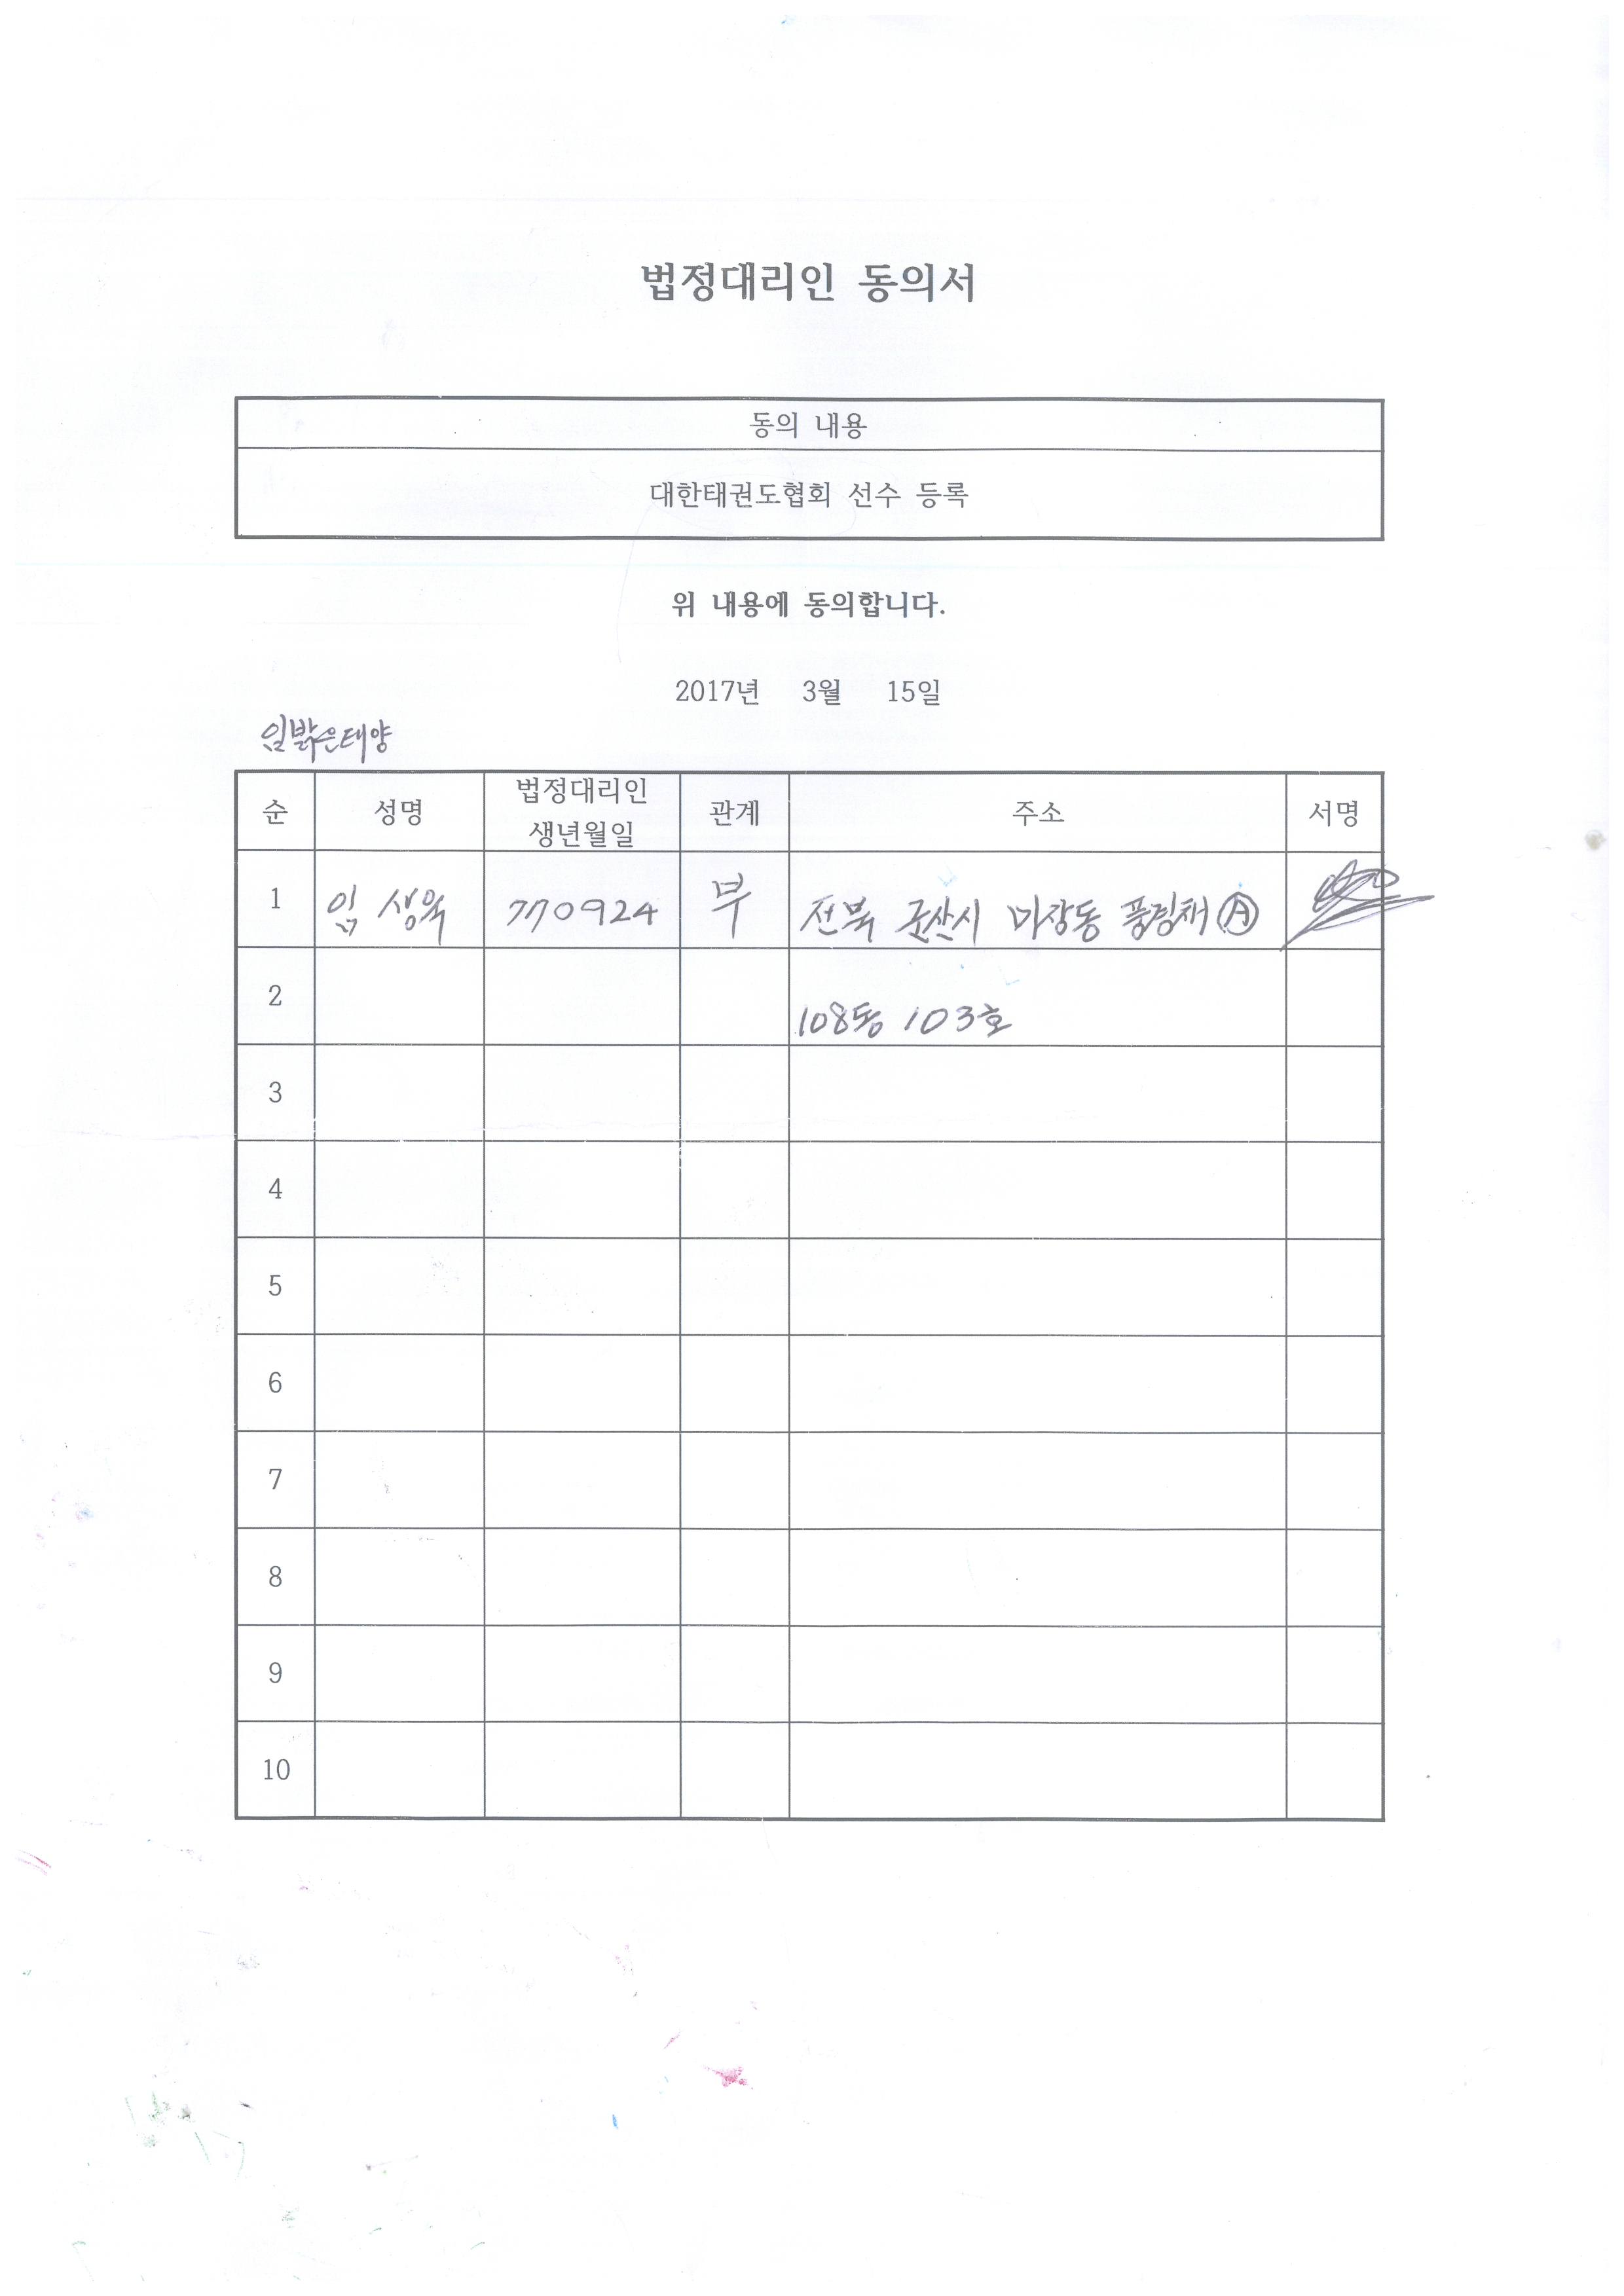 법정대리인 동의서
동의 내용
대한태권도협회 선수 등록
위 내용에 동의합니다.
2017년 3월 15일
임밝은태양
순 성명 법정대리인 생년월일 관계 주소 서명
1 임 생욱 770924 부 전북 군산시 미장동 풍경채 Ⓐ
2 108동 103호
3
4
5
6
7
8
9
10